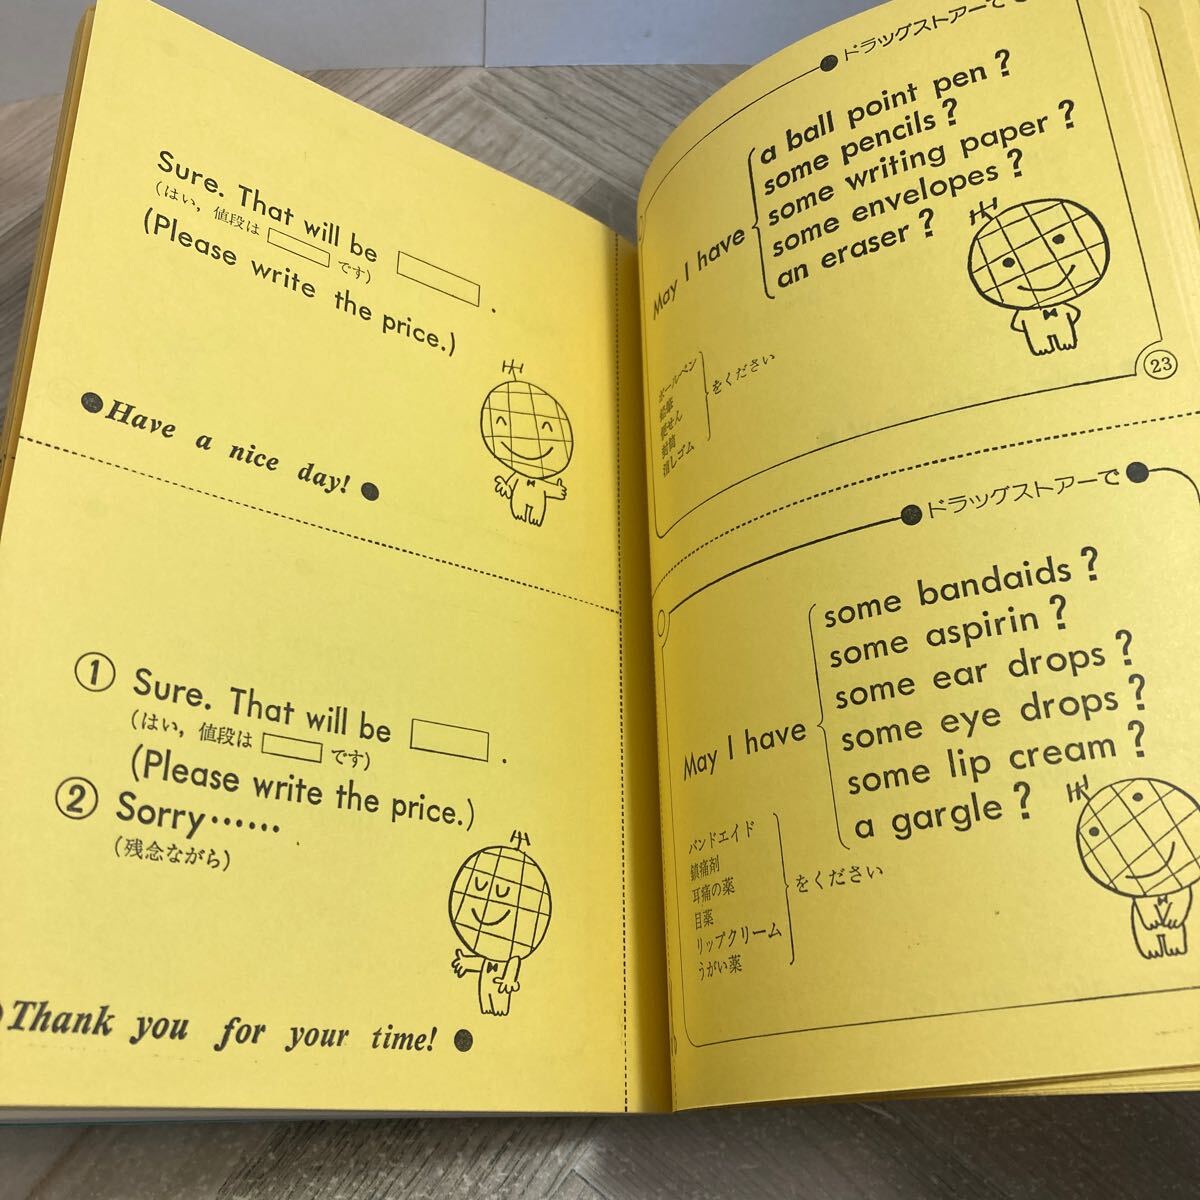 Sure. That will be
(はい，値段は です)
(Please write the price.)
Have a nice day!
① Sure. That will be .
(はい，値段は です)
(Please write the price.)
② Sorry……
(残念ながら)
Thank you for your time!
ドラッグストアーで
May I have
a ball point pen?
some pencils?
some writing paper?
some envelopes?
an eraser?
ボールペン
鉛筆
便せん
封筒
消しゴム
をください
23
ドラッグストアーで
May I have
some bandaids?
some aspirin?
some ear drops?
some eye drops?
some lip cream?
a gargle?
バンドエイド
鎮痛剤
耳痛の薬
目薬
リップクリーム
うがい薬
をください